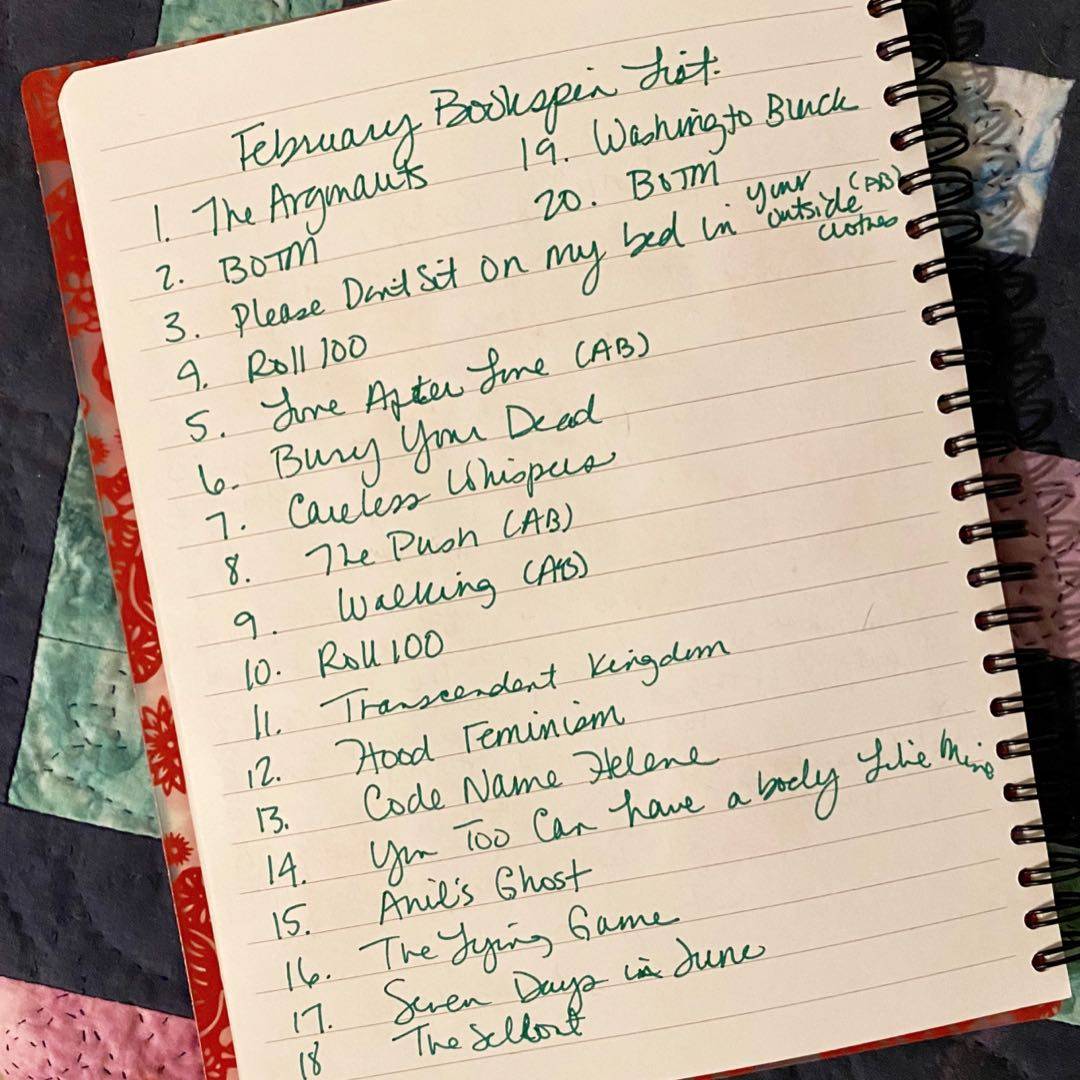 February Bookspin List:
1. The Argonauts
2. BOTM
3. Please Don't Sit on my bed in your outside clothes (AB)
4. Roll 100
5. Time After Time (AB)
6. Bury Your Dead
7. Careless Whispers
8. The Push (AB)
9. Walking (AB)
10. Roll 100
11. Transcendent Kingdom
12. Hood Feminism
13. Code Name Helene
14. You Too Can have a body Like Mine
15. Anil's Ghost
16. The Lying Game
17. Seven Days in June
18 The Sellout
19. Washington Black
20. BOTM